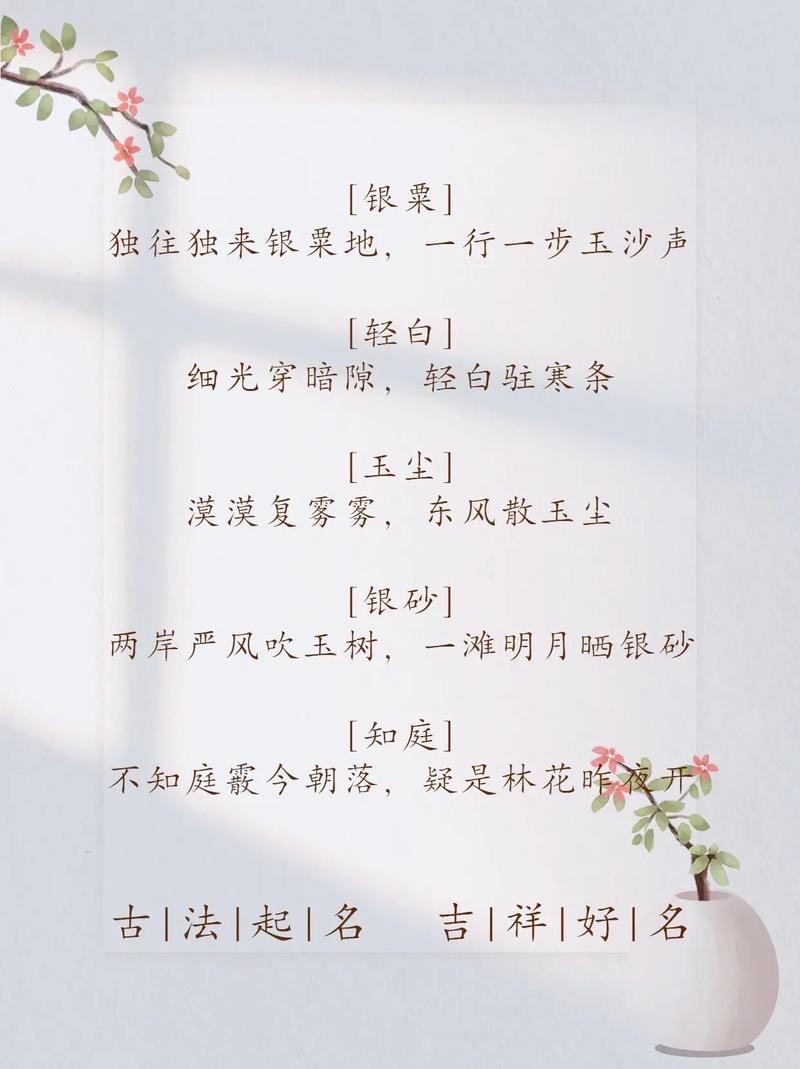 [银粟]
独往独来银粟地，一行一步玉沙声
[轻白]
细光穿暗隙，轻白驻寒条
[玉尘]
漠漠复雾雾，东风散玉尘
[银砂]
两岸严风吹玉树，一滩明月晒银砂
[知庭]
不知庭霰今朝落，疑是林花昨夜开
古|法|起|名 吉|祥|好|名